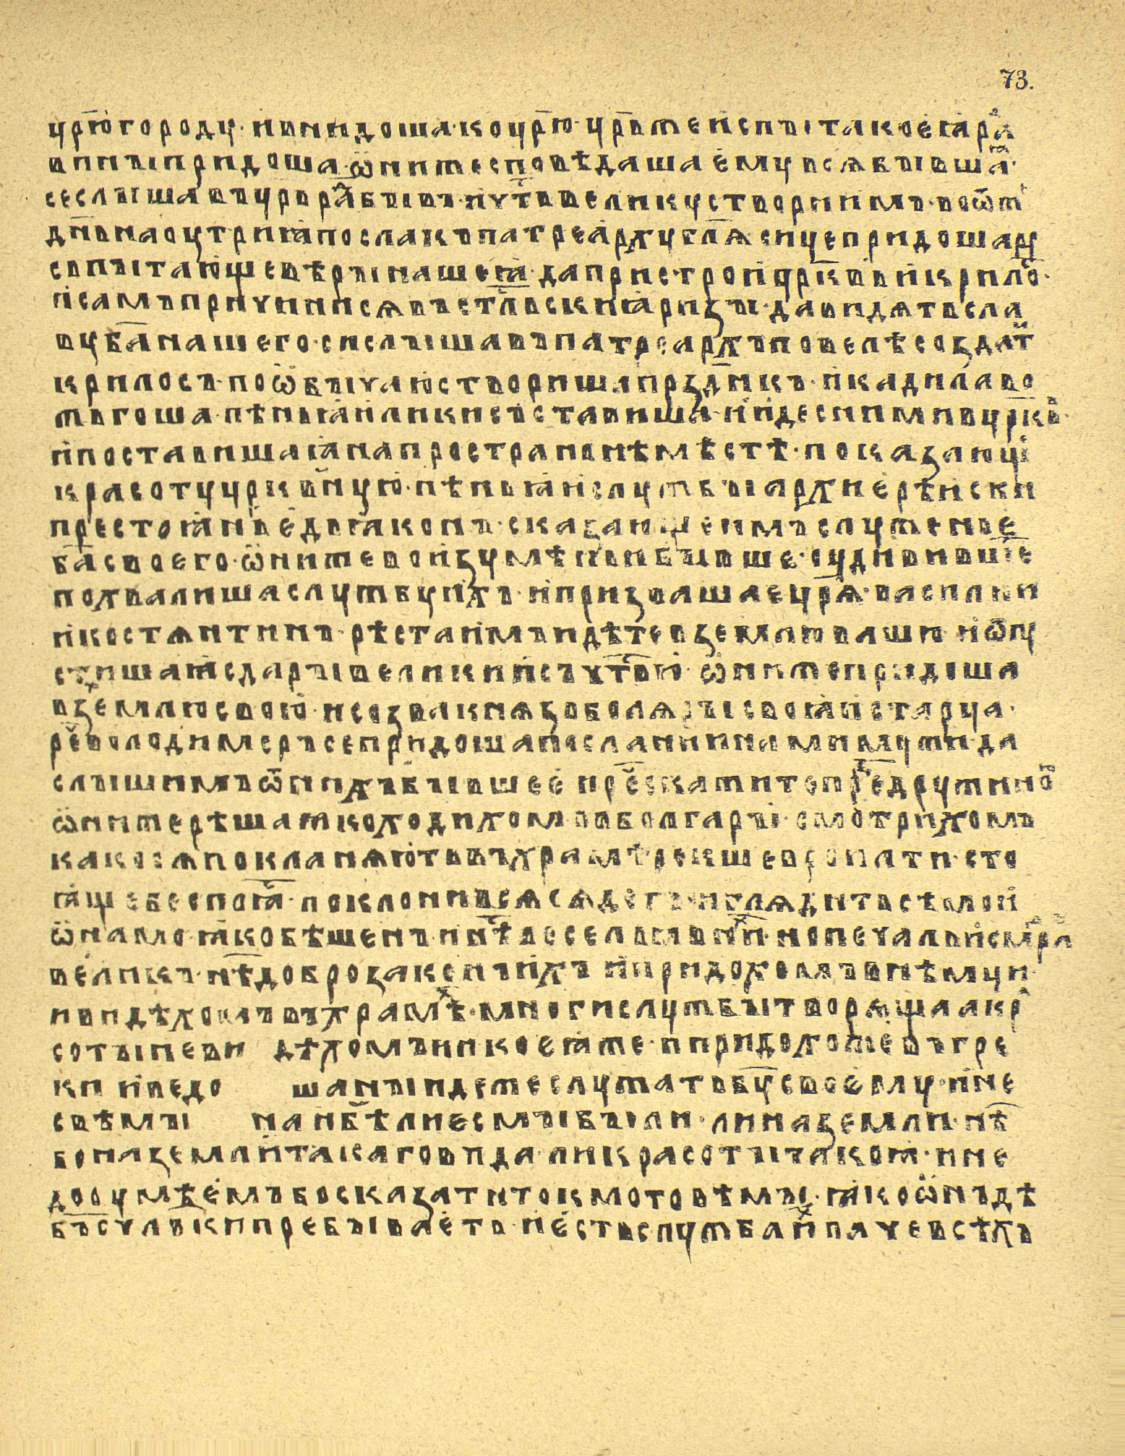 73.
црю҃городу · и внидоша ко црю҃ · цр҃ь же испыта коеꙗ ра̑
вины придоша ѡ҆ни же сповѣдаша ему всѧ бывшаꙗ ·
се слышавъ цр҃ь ра҃ бывъ · и чт҃ь велику створи имъ · во ѿ ж
дн҃ь наоутриꙗ посла къ патреарху гл҃ѧ сице придоша ру
сь пытающе вѣры нашеꙗ · да пристрои цр҃кь и крило ·
и самъ причинисѧ въ ст҃льскиꙗ ризы · да видѧть сла
ву ба҃ нашего · си слышавъ патреархъ повелѣ создат
крилосъ · по ѡ҆бычаю створиша празд҃никъ · и кадила во
жьгоша · пѣньꙗ и лики съставиша · и иде с ними в цр҃кв
и поставиша ꙗ на пространьнѣ мѣстѣ · показающи
красоту цр҃квную · пѣньꙗ и службы архиерѣиски
престоꙗнье дьꙗконъ · сказающе имъ служенье
ба҃ своего · ѡ҆ни же во изумѣньи бывше · оудививше
похвалиша службу ихъ · и призваша е цр҃ѧ · василии
и костѧнтинъ · рѣста имъ идѣте в землю вашю · и ѿпу
стиша ꙗ с дары велики и съ чт҃ью · ѡ҆ни же придоша
в землю свою · и созва кнѧзь болѧры своꙗ и старца ·
рѣ҃ володимеръ се придоша послании нами мужи · да
слышимъ ѿ нихъ бывшее · и ре҃ скажите предъ дружиною
ѡ҆ни же рѣша ꙗко ходихомъ въ болгары · смотрихомъ
како сѧ покланѧють въ храмѣ рекше в ропати · сто
ꙗще бес поꙗса · поклонивсѧ сѧдеть · и глѧдить сѣмо и
ѡ҆намо ꙗко бѣшенъ · и нѣ҃ веселья в ни҃ · но печаль и смра
великъ · нѣ҃ добро законъ ихъ · и придохомъ в нѣмци ·
и видѣхомъ въ храмѣ · многи службы творѧща а кр
соты не видѣхомъ никоеꙗже · и придохомже въ гре
ки и ведо ша ны идеже служать бу҃ своему · и не
свѣмы на нб҃ѣ ли есмы были · ли на земли · нѣ
бо на земли такаго вида · ли красоты такоꙗ · и не
дооумѣемъ бо сказати токмо то вѣмы · ꙗко ѡ҆нъдѣ
бъ҃ с члвки пребываеть · и есть служба и паче всѣхъ